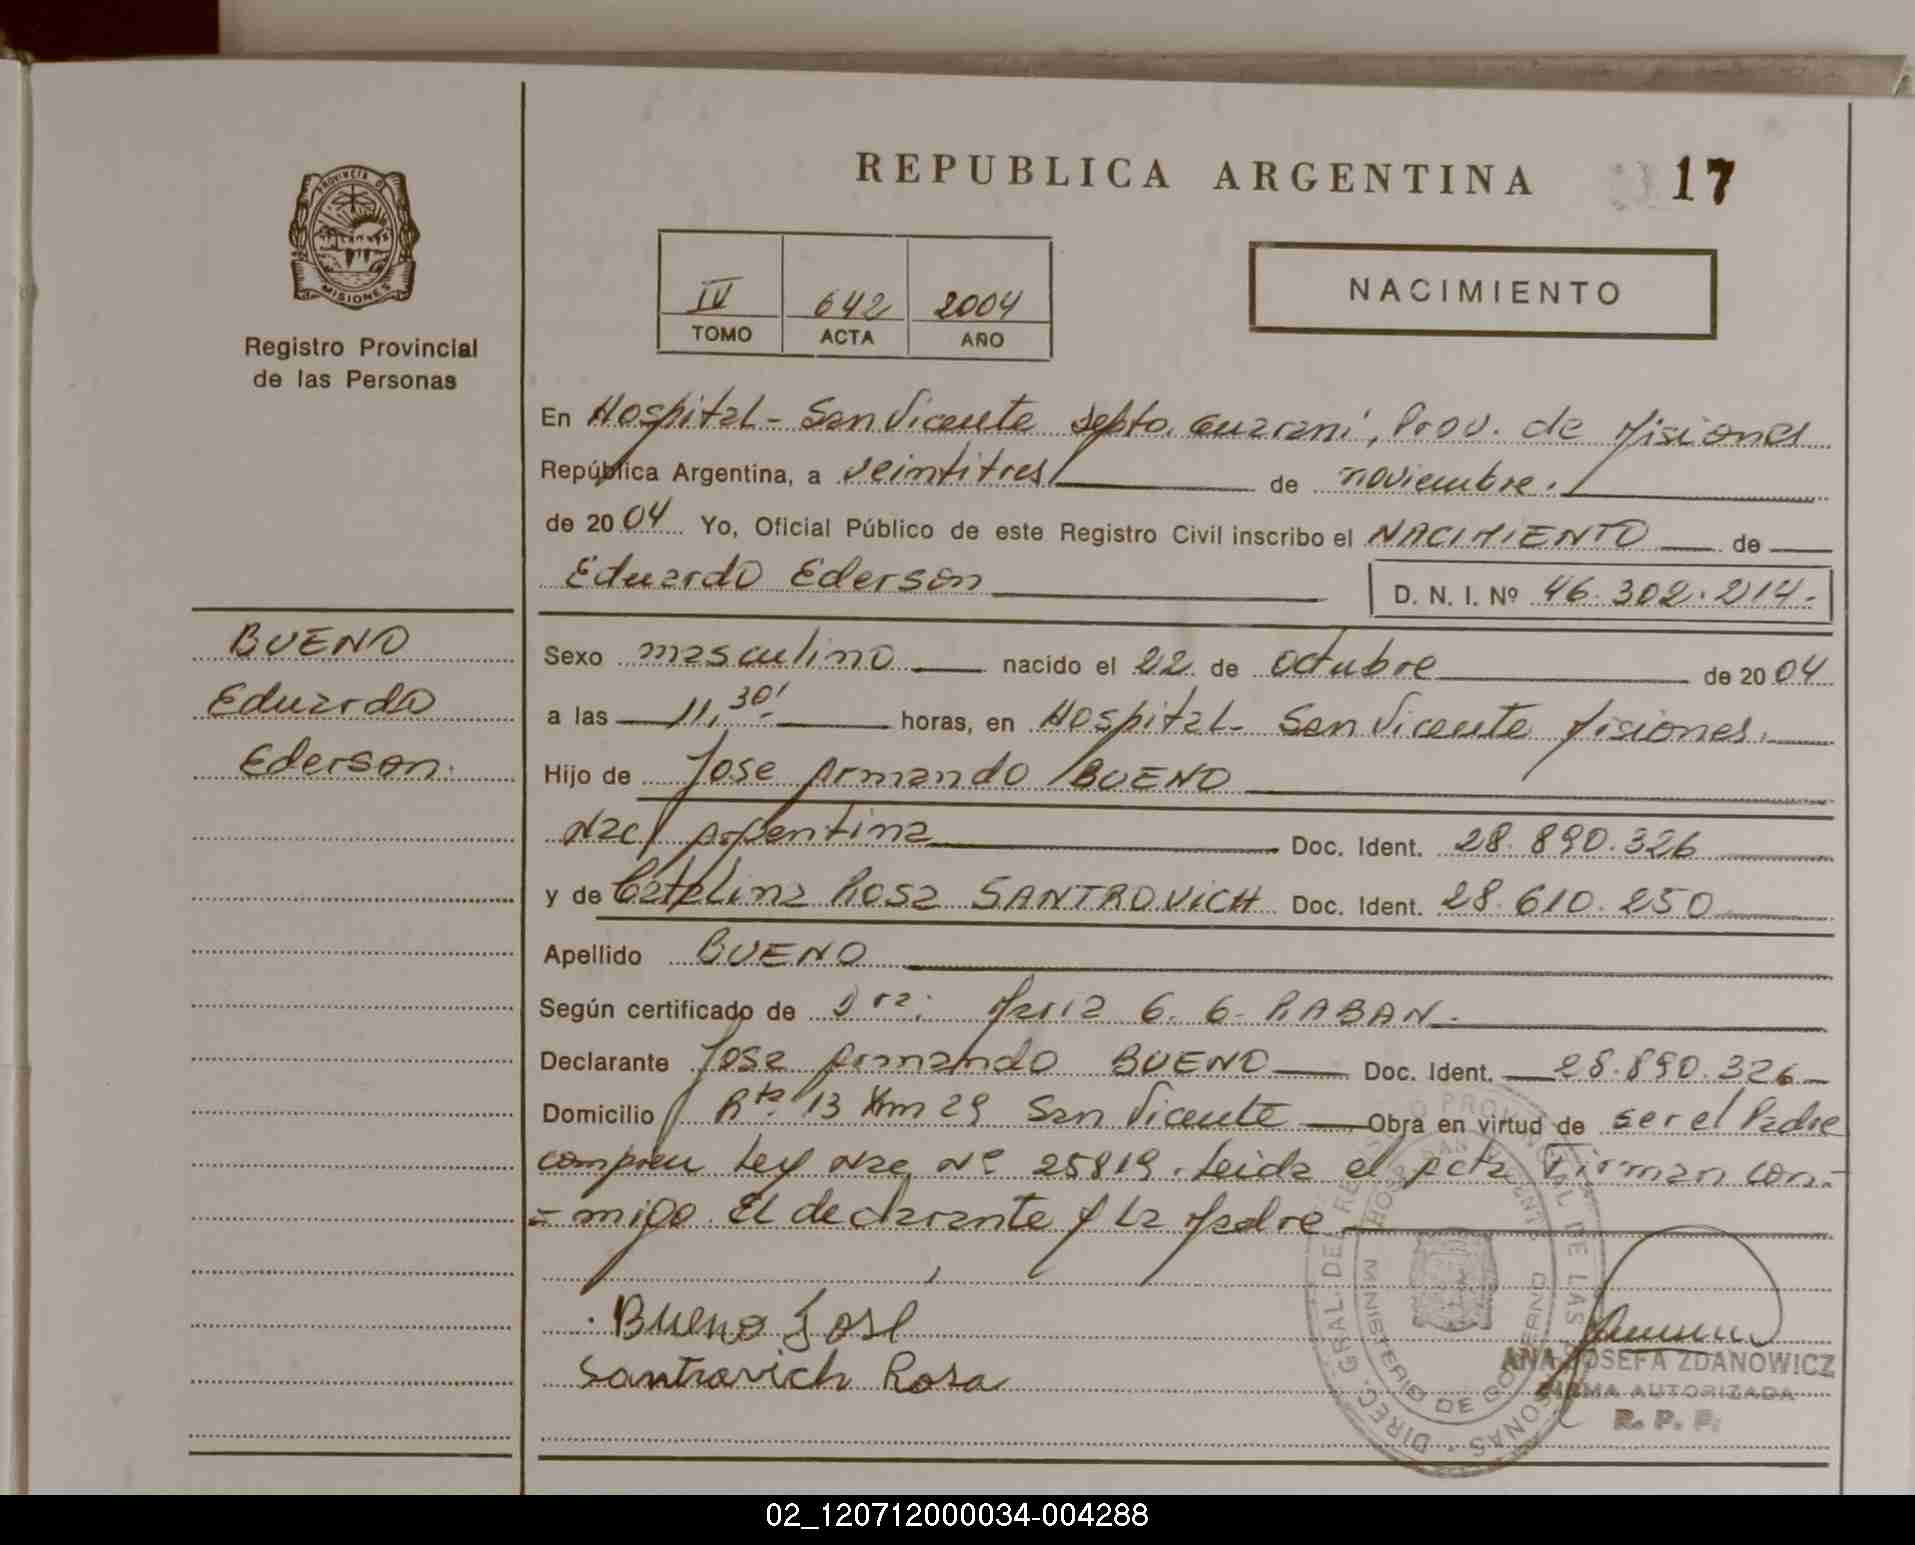 REPUBLICA ARGENTINA 17
PROVINCIA DE
MISIONES
Registro Provincial
de las Personas
IV 642 2004
TOMO ACTA AÑO
NACIMIENTO
En Hospital - San Vicente Depto. Guarani, Prov. de Misiones
República Argentina, a veintitres de noviembre.
de 2004 Yo, Oficial Público de este Registro Civil inscribo el NACIMIENTO de
Eduardo Ederson D. N. I. Nº 46.302.214.-
BUENO
Eduardo
Ederson.
Sexo masculino nacido el 22 de octubre de 2004
a las 11,30' horas, en Hospital - San Vicente Misiones.
Hijo de Jose Armando BUENO
Nac/ Argentina Doc. Ident. 28.890.326
y de Catalina Rosa SANTROVICH Doc. Ident. 28.610.250
Apellido BUENO
Según certificado de Dra: Maria G. G. RABAN.
Declarante Jose Armando BUENO Doc. Ident. 28.890.326
Domicilio Rta. 13 Km 29 San Vicente Obra en virtud de ser el Padre
Ley Nac Nº 25819. Leida el Acta Firman con-
=migo. El declarante y la Madre
Bueno Jose
Santrovich Rosa
DIREC. GRAL DEL REGISTRO PROVINCIAL DE LAS PERSONAS
HOSP. SAN VICENTE
MINISTERIO DE GOBIERNO
ANA JOSEFA ZDANOWICZ
FIRMA AUTORIZADA
R. P. P.
02_120712000034-004288